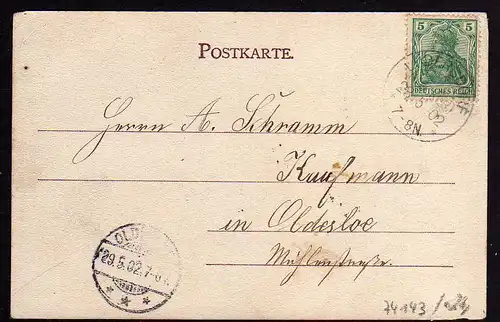 POSTKARTE.
5
DEUTSCHES REICH
02
7-8N.
Herrn A. Schramm
Kaufmann
in Oldesloe
Mühlenstraße.
29.5.02.7-
74143/